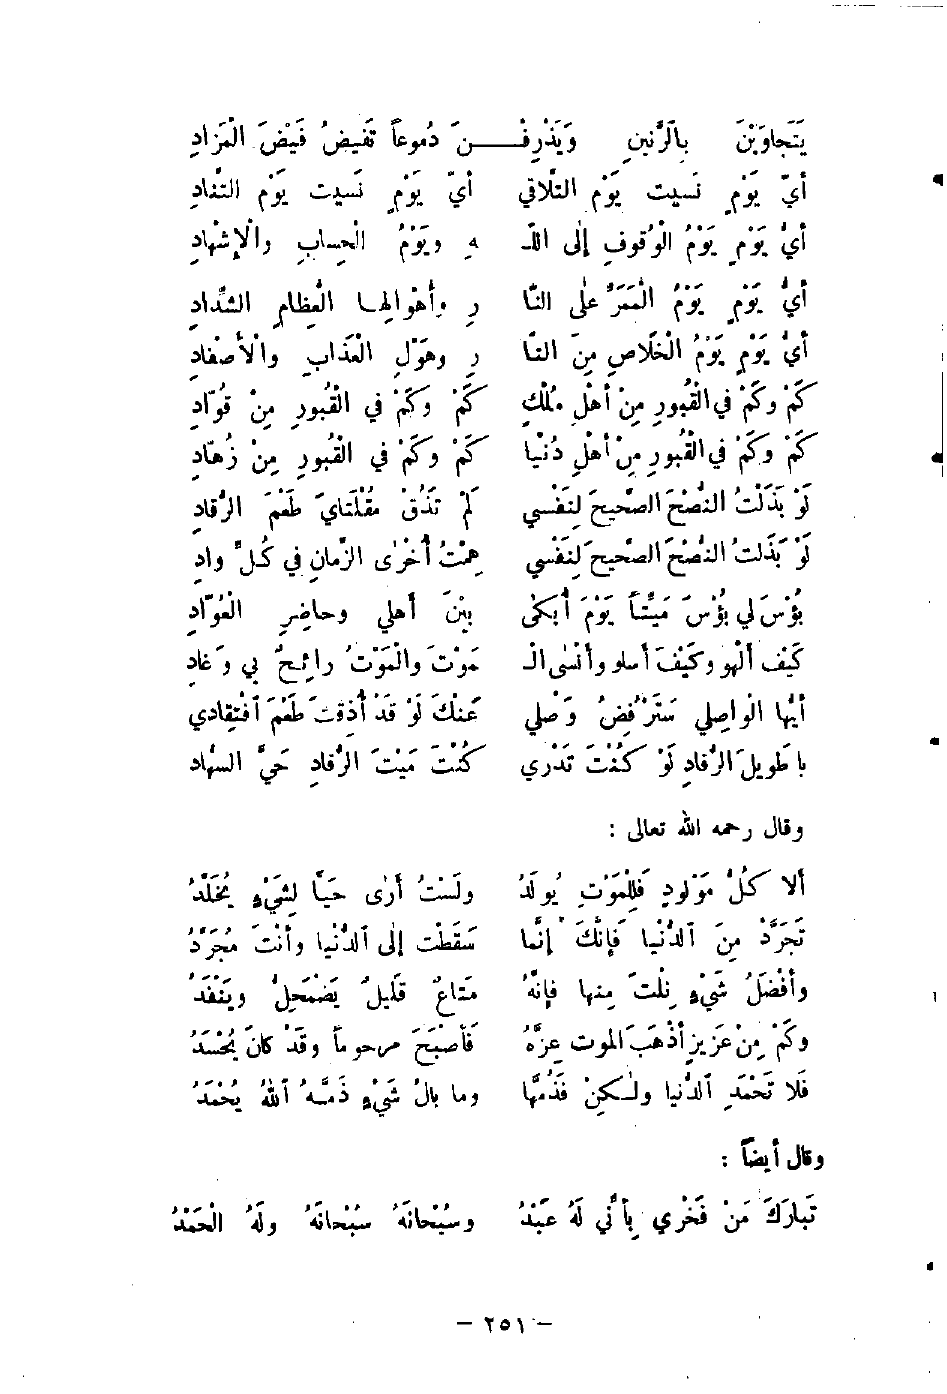 يَتَجاوَبْنَ بِالرَّنينِ وَيَذْرِفْـــنَ دُموعاً تَفيضُ فَيْضَ الْمَزادِ
أيَّ يَوْمٍ نَسيت يَوْم التَّلاقي أيَّ يَوْمٍ نَسيت يَوْم التَّنادِ
أيُّ يَوْمٍ يَوْمُ الْوُقوفِ إلى اللَّـ ـهِ ويَوْمُ الْحِسابِ والْإشْهادِ
أيُّ يَوْمٍ يَوْمُ الْمَمَرِّ على النَّا رِ وأهْوالِها الْعِظامِ الشِّدادِ
أيُّ يَوْمٍ يَوْمُ الْخَلَاصِ مِنَ النَّا رِ وهَوْلِ الْعَذابِ والْأصْفادِ
كَمْ وكَمْ في الْقُبورِ مِنْ أهْلِ مُلْكٍ كَمْ وكَمْ في الْقُبورِ مِنْ قُوّادِ
كَمْ وكَمْ في الْقُبورِ مِنْ أهْلِ دُنْيا كَمْ وكَمْ في الْقُبورِ مِنْ زُهّادِ
لَوْ بَذَلْتُ النُّصْحَ الصَّحيحَ لِنَفْسي لَمْ تَذُقْ مُقْلَتايَ طَعْمَ الرُّقادِ
لَوْ بَذَلتُ النُّصْحَ الصَّحيحَ لِنَفْسي هِمْتُ أُخْرى الزَّمانِ في كُلِّ وادِ
بُؤْسَ لي بُؤْسَ مَيِّتاً يَوْمَ أُبْكى بَيْنَ أهلي وحاضِرِ الْعُوّادِ
كَيْفَ ألْهو وكَيْفَ أسلو وأنْسى الْـ ـمَوْتَ والْمَوْتُ رائِحٌ بي وغَادِ
أيُّها الْواصِلي سَتَرْفُضُ وَصْلي عَنْكَ لَوْ قَدْ أُذِقْتَ طَعْمَ ٱفْتِقادي
يا طَويلَ الرُّقادِ لَوْ كُنْتَ تَدْري كُنْتَ مَيْتَ الرُّقادِ حَيَّ السُّهادِ
وقال رحمه الله تعالى :
ألا كُلُّ مَوْلودٍ فَلِلْمَوْتِ يُولَدُ ولَسْتُ أرى حَيّاً لِشَيْءٍ يُخَلَّدُ
تَجَرَّدْ مِنَ ٱلدُّنْيا فَإنَّكَ إنَّما سَقَطْت إلى ٱلدُّنْيا وأنْتَ مُجَرَّدُ
وأفْضَلُ شَيْءٍ نِلْتَ مِنها فإنَّهُ مَتاعٌ قَليلٌ يَضْمَحِلُّ ويَنْفَدُ
وكَمْ مِنْ عَزيزٍ أذْهَبَ الموت عِزَّهُ فَأصْبَحَ مرحوماً وقَدْ كانَ يُحْسَدُ
فَلا تَحْمَدِ ٱلدُّنيا ولٰكِنْ فَذُمَّها وما بالُ شَيْءٍ ذَمَّهُ ٱللهُ يُحْمَدُ
وقال أيضاً :
تَبارَكَ مَنْ فَخْري بِأنّي لَهُ عَبْدُ وسُبْحانَهُ سُبْحانَهُ ولَهُ الْحَمْدُ
– ٢٥١ –